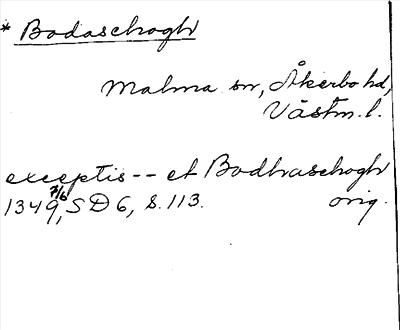 * Bodaschogh
Malma sn, Åkerbo hd,
Västm. l.
exceptis -- et Bodhraschogh
1349 7/6, SD 6, s. 113. orig.